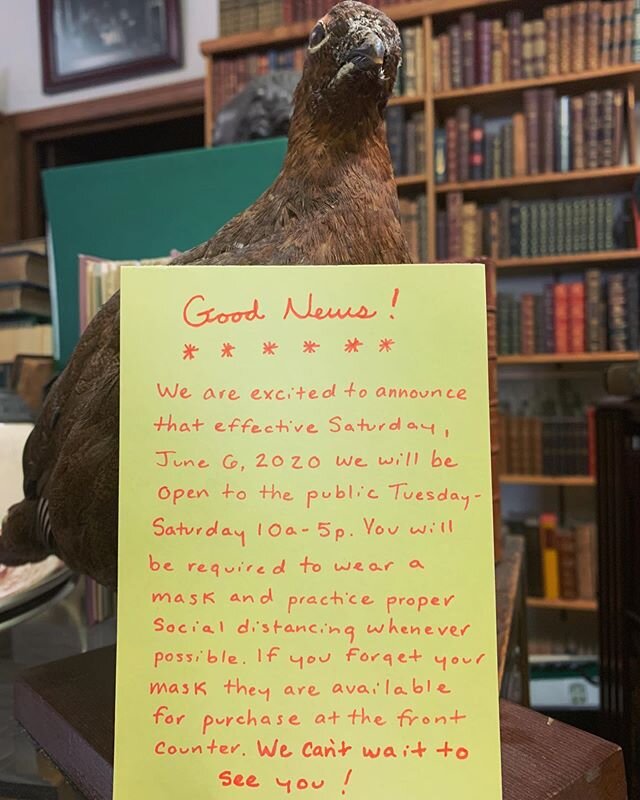 Good News!
* * * * * *
We are excited to announce
that effective Saturday,
June 6, 2020 we will be
open to the public Tuesday-
Saturday 10a-5p. You will
be required to wear a
mask and practice proper
Social distancing whenever
possible. If you forget your
mask they are available
for purchase at the front
counter. We can't wait to
see you!